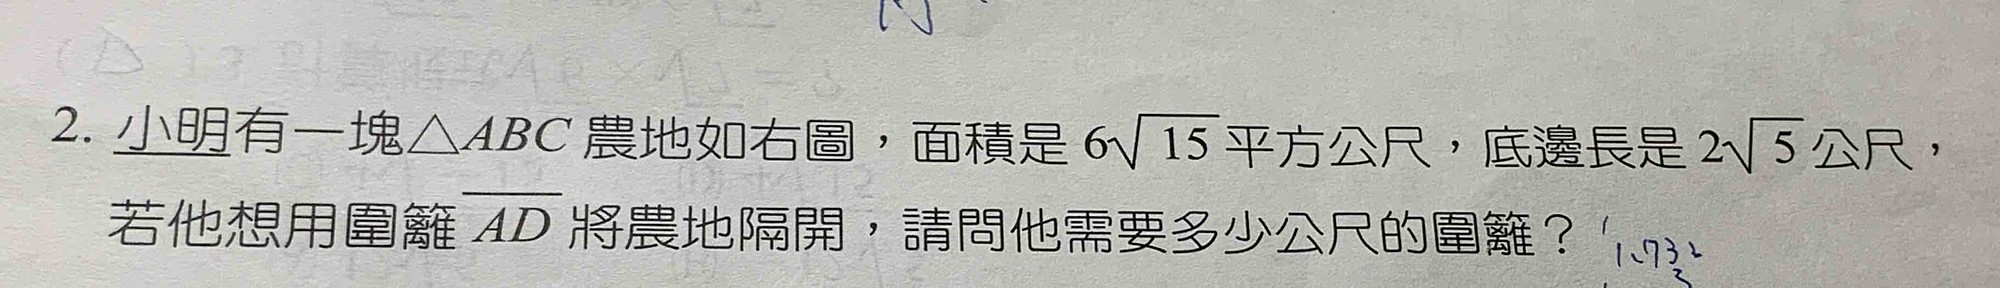 2. 小明有一塊△ABC 農地如右圖，面積是 6√15 平方公尺，底邊長是 2√5 公尺，
若他想用圍籬 AD 將農地隔開，請問他需要多少公尺的圍籬？ 1.732